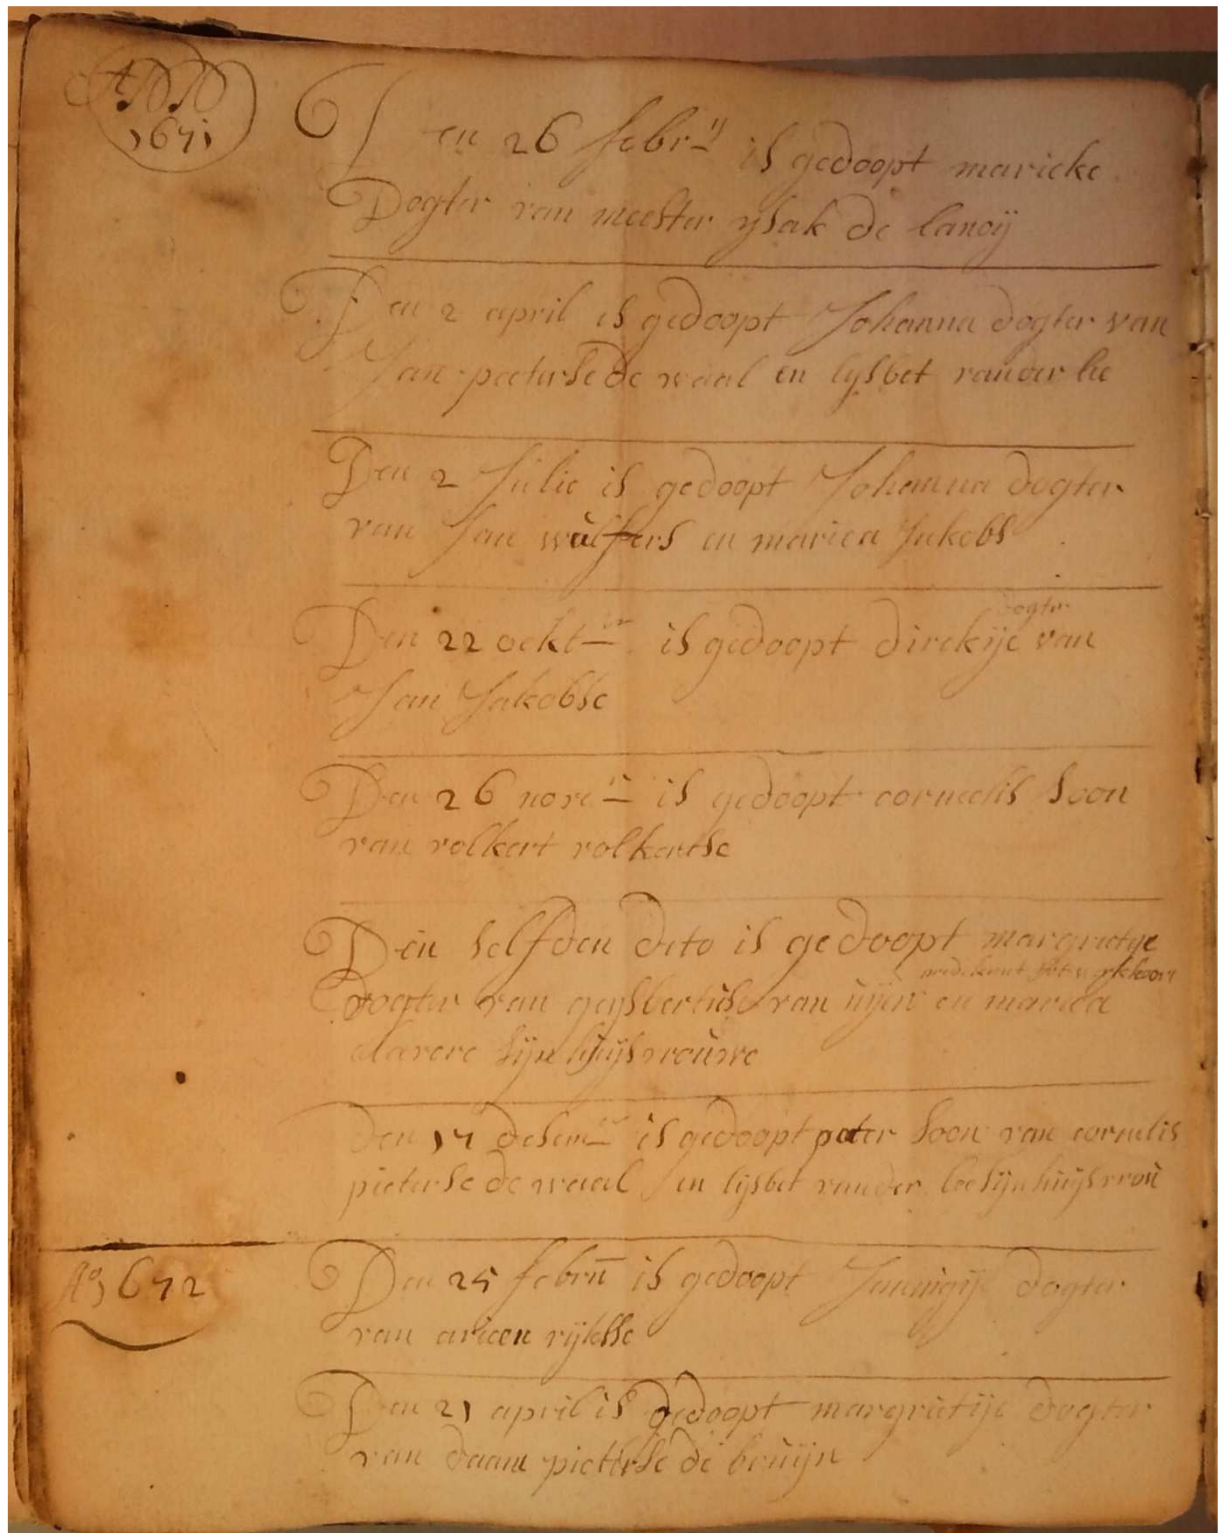 1671
Den 26 febrij is gedoopt marieke
Dogter van meester ysak de lanoij
Den 2 april is gedoopt Johanna dogter van
Jan pieterse de waal en lysbet vander lee
Den 2 Julie is gedoopt Johanna dogter
van Jan wulfers en mariea Jakobs
dogter
Den 22 ockt er is gedoopt dirckije van
Jan Jakobse
Den 26 nove is gedoopt cornelis soon
van volkert volkertse
Den selfden dito is gedoopt margrietge
dogter van gijsbertuse van uijen en mariea
clavere sijn huijsvrouwe
Den 17 desem er is gedoopt pieter soon van cornelis
pieterse de waal en lijsbet vander lee sijn huijsvrou
Ao 1672
Den 25 febru is gedoopt Janingije dogter
van arieen rijkse
Den 21 april is gedoopt margrietije dogter
van daam pieterse de bruijn